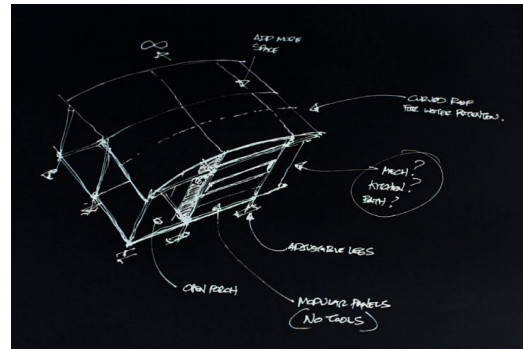 ∞
ADD MORE
SPACE
CURVED ROOF
FOR WATER RETENTION.
MECH?
KITCHEN?
BATH?
ADJUSTABLE LEGS
OPEN PORCH
MODULAR PANELS
(NO TOOLS)